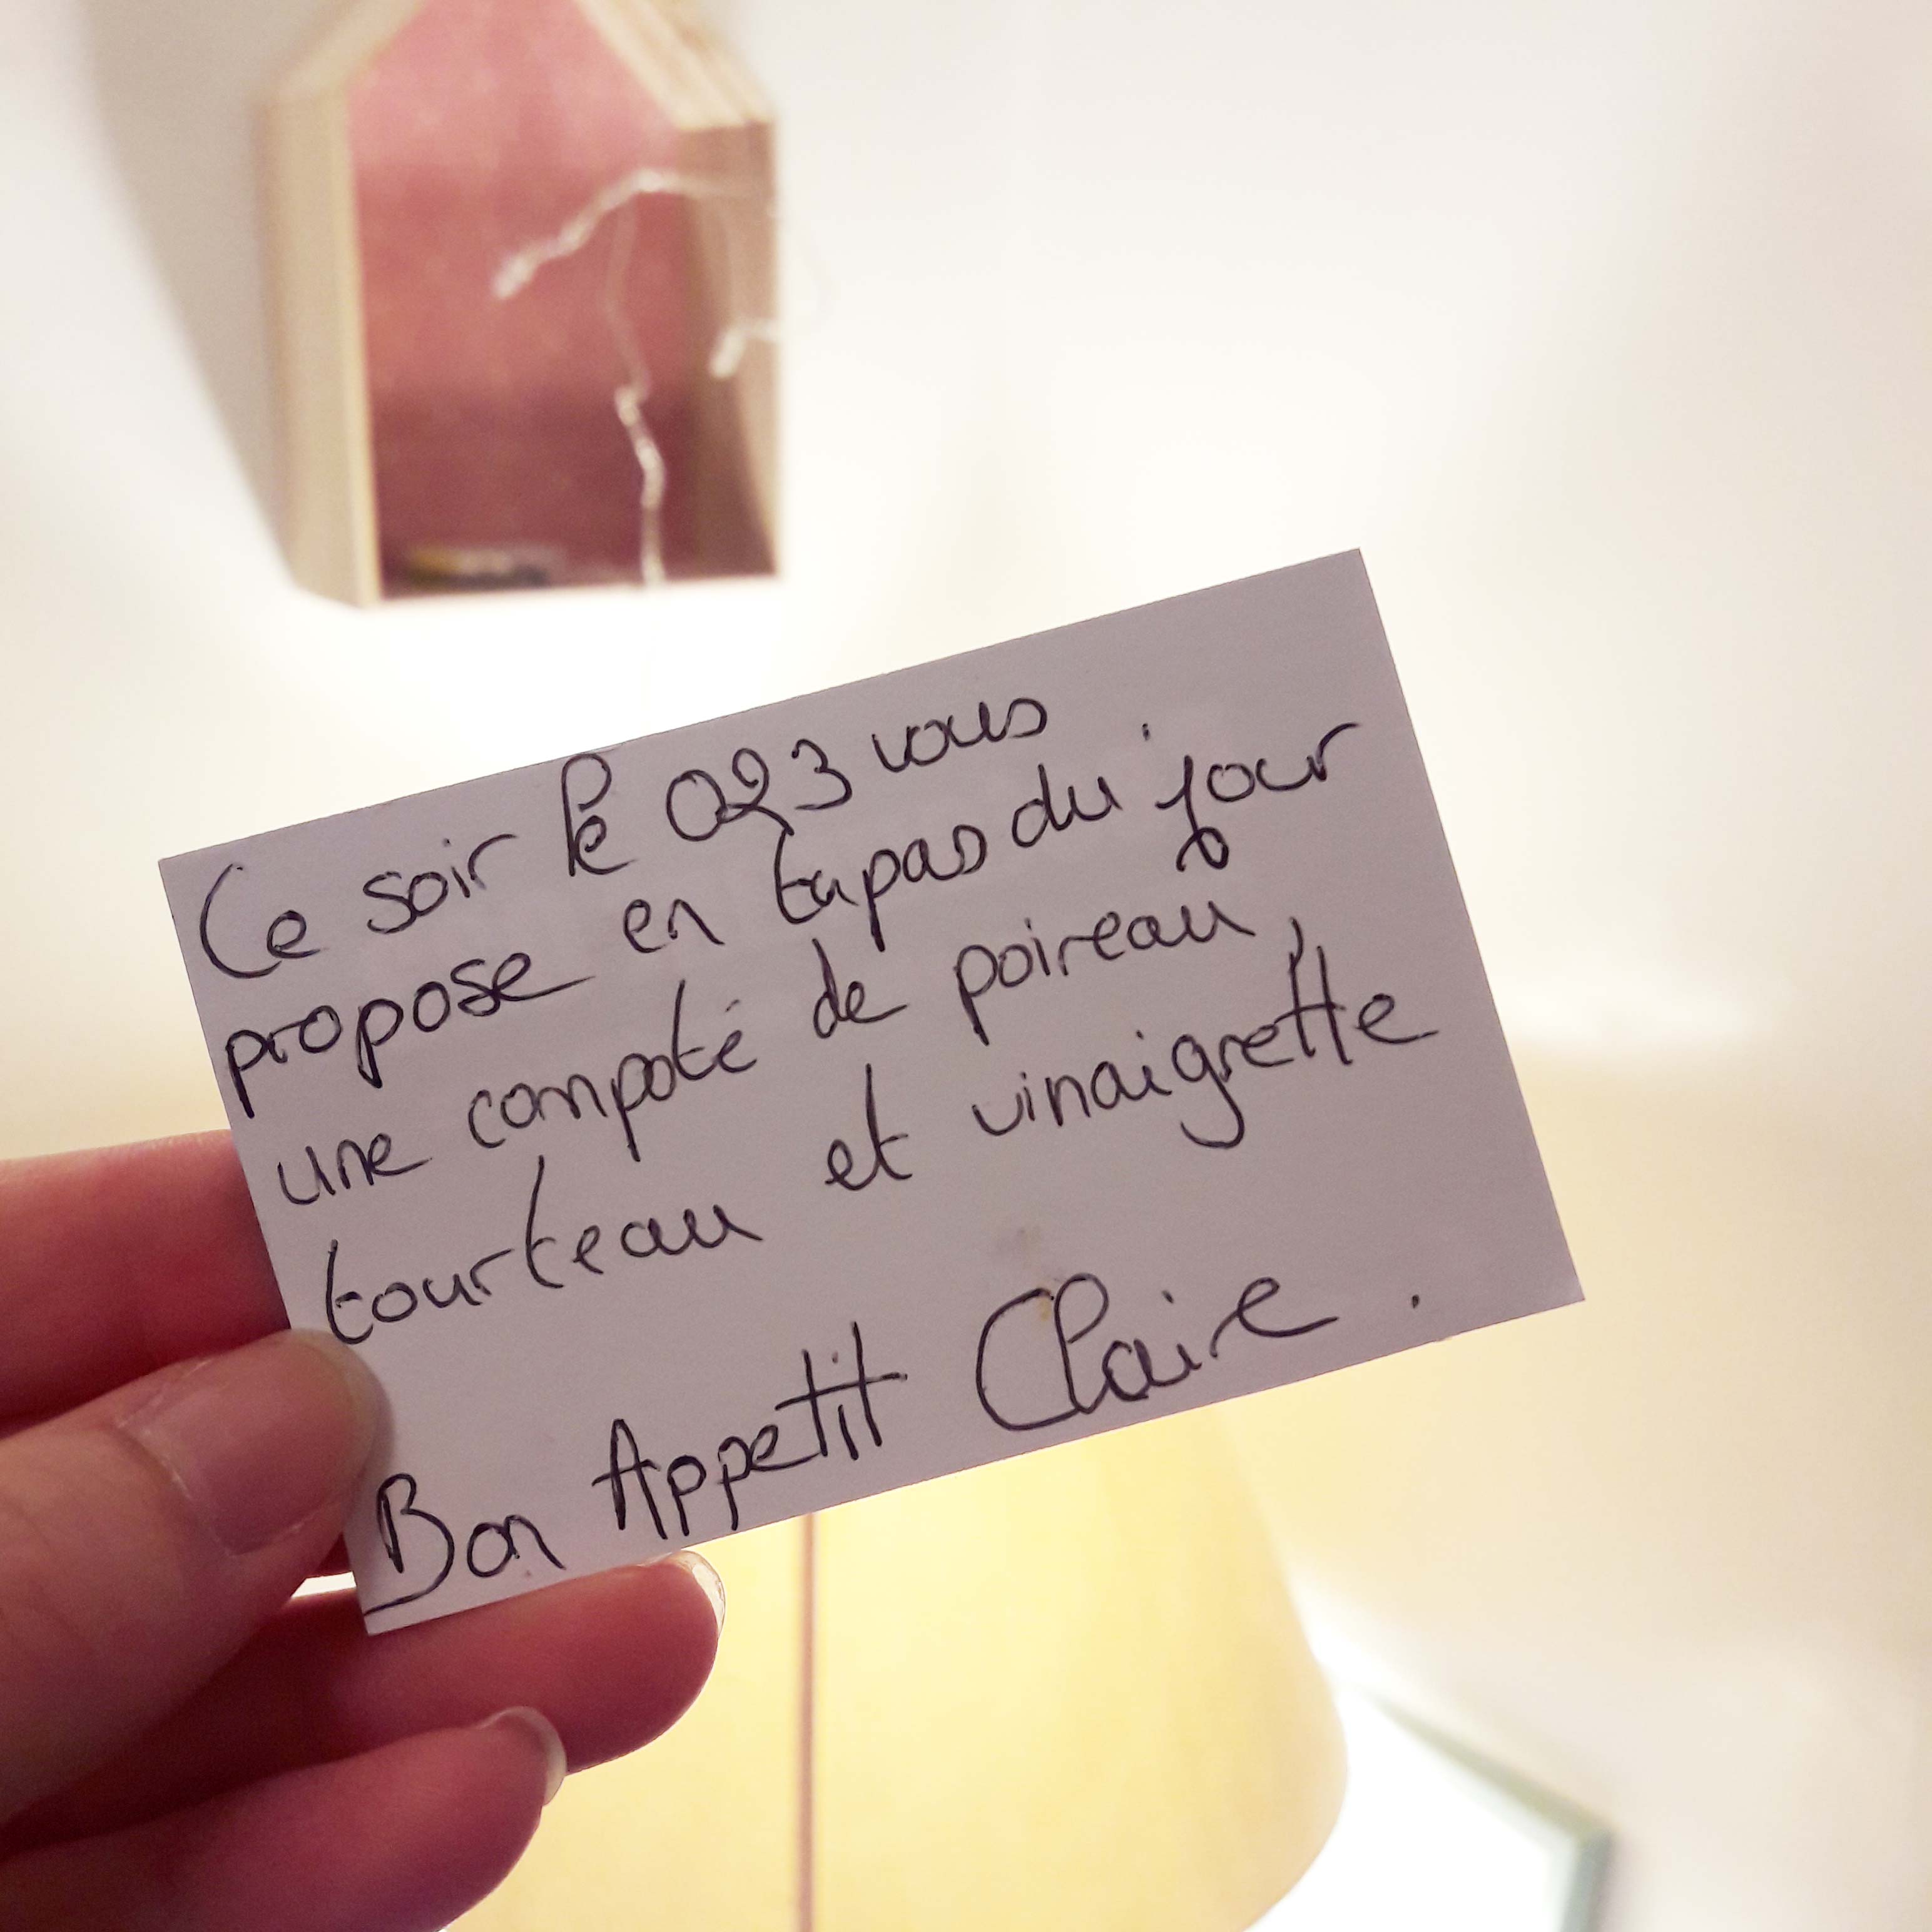 Ce soir le 023 vous
propose en tapas du jour
une compoté de poireau,
tourteau et vinaigrette
Bon Appetit Claire.